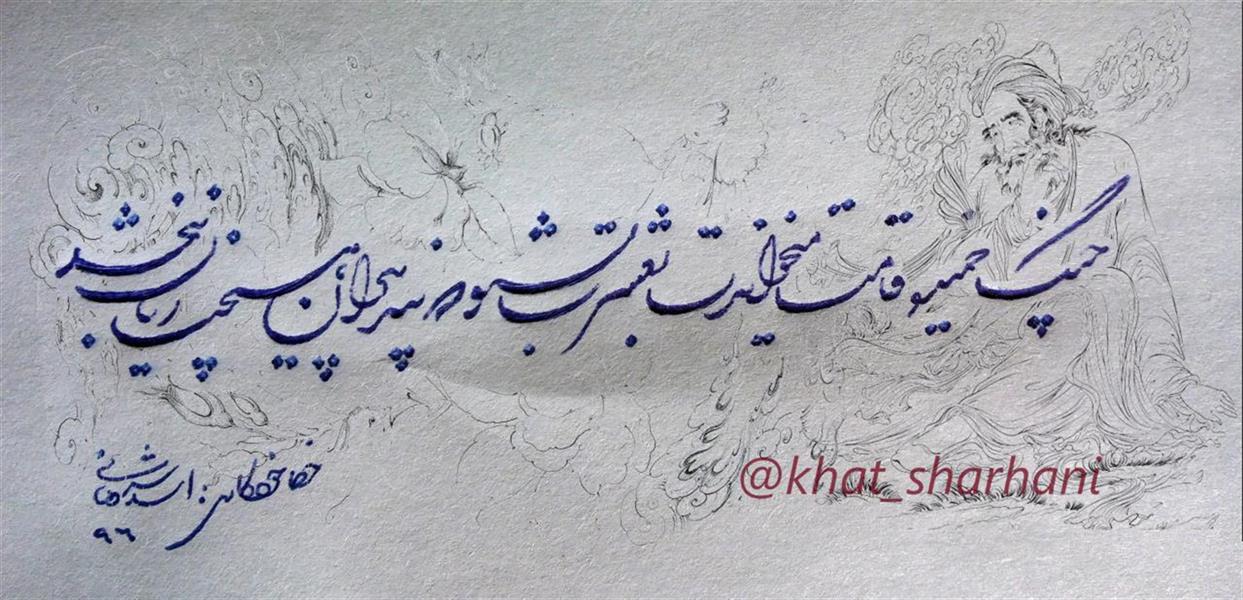 چنگ خمیده قامت میخواندت بعشرت بشنو که پند پیران هیچت زیان
خط خودکاری: اسد شرهانی
۹۶
@khat_sharhani